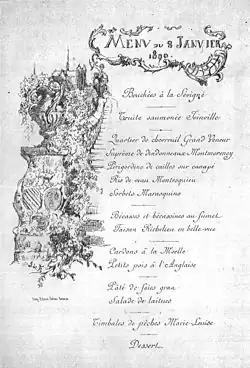 MENU DU 8 JANVIER
1890
Bouchées à la Sévigné
Truite saumonée Joinville
Quartier de chevreuil Grand Veneur
Suprême de dindonneaux Montmorency
Périgordins de cailles sur canapé
Ris de veau Montesquieu
Sorbets Marasquins
Bécasses et bécassines au fumet
Faisan Richelieu en belle-vue
Cardons à la Moelle
Petits pois à l'Anglaise
Pâté de foies gras
Salade de laitues
Timbales de pêches Marie-Louise
Dessert